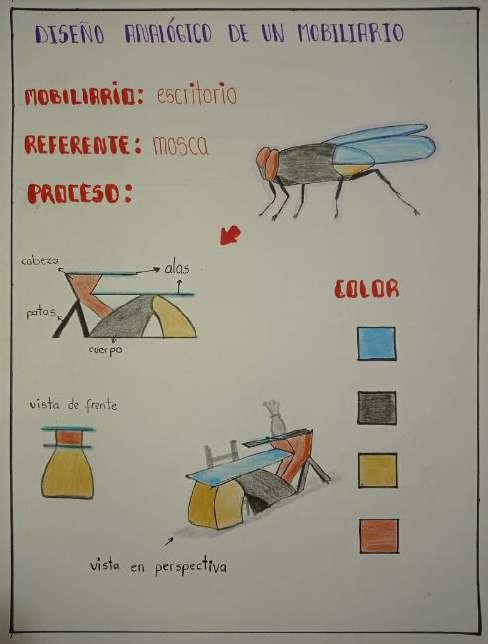 DISEÑO ANALÓGICO DE UN MOBILIARIO
MOBILIARIO: escritorio
REFERENTE: mosca
PROCESO:
cabeza
alas
patas
cuerpo
COLOR
vista de frente
vista en perspectiva